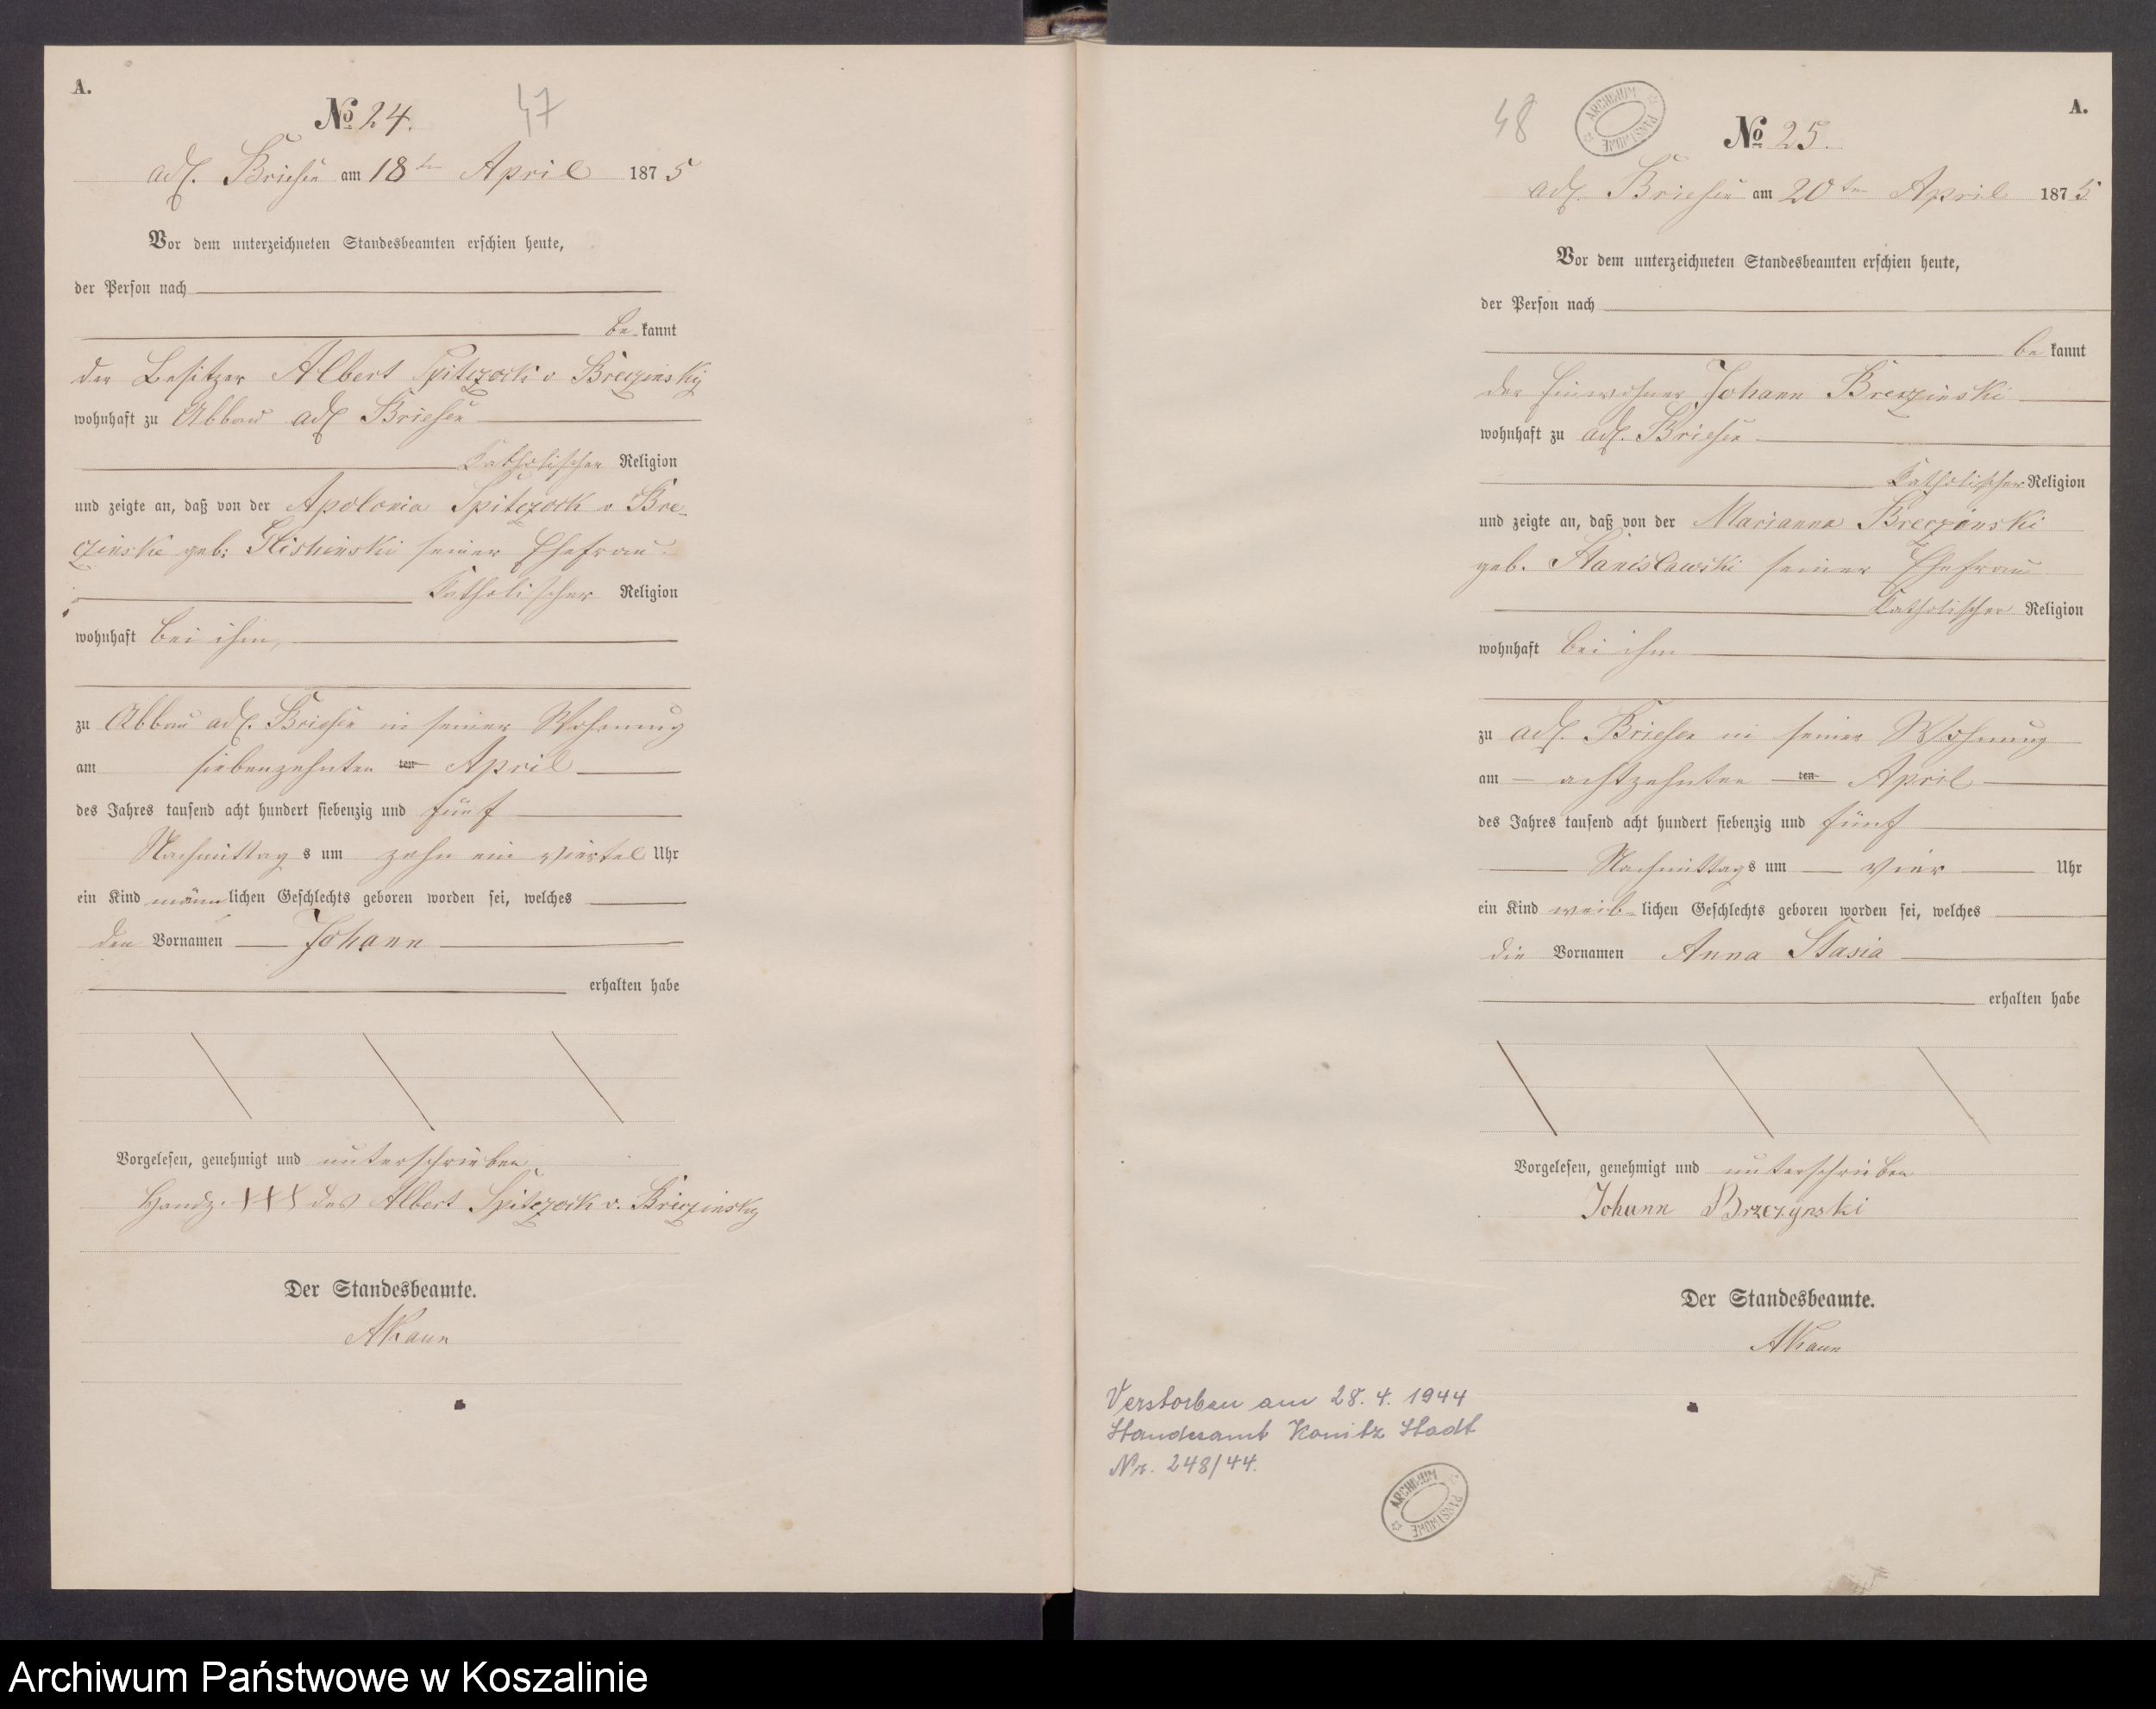 A.
No 24.
47
adl. Briesen am 18ten April 1875
Vor dem unterzeichneten Standesbeamten erschien heute,
der Person nach
be kannt
der Besitzer Albert Spitczock v Breczinsky
wohnhaft zu Abbau adl Briesen
Katholischer Religion
und zeigte an, daß von der Apolonia Spitczock v Bre-
czinski geb: Glishinski seiner Ehefrau
Katholischer Religion
wohnhaft bei ihm,
zu Abbau adl. Briesen in seiner Wohnung
am siebenzehnten ten April
des Jahres tausend acht hundert siebenzig und fünf
Nachmittag s um zehn ein viertel Uhr
ein Kind männlichen Geschlechts geboren worden sei, welches
den Vornamen Johann
erhalten habe
Vorgelesen, genehmigt und unterschrieben
Handz. XXX des Albert Spitczock v. Briczinsky
Der Standesbeamte.
48
ARCHIWUM PAŃSTWOWE
A.
No 25.
adl. Briesen am 20ten April 1875
Vor dem unterzeichneten Standesbeamten erschien heute,
der Person nach
be kannt
der Einwohner Johann Breczinski
wohnhaft zu adl. Briesen
Katholischer Religion
und zeigte an, daß von der Marianna Breczinski
geb. Stanislawski seiner Ehefrau
Katholischer Religion
wohnhaft bei ihm
zu adl. Briesen in seiner Wohnung
am achtzehnten ten April
des Jahres tausend acht hundert siebenzig und fünf
Nachmittags um vier Uhr
ein Kind weib-lichen Geschlechts geboren worden sei, welches
die Vornamen Anna Stasia
erhalten habe
Vorgelesen, genehmigt und unterschrieben
Johann Brzczynski
Der Standesbeamte.
Verstorben am 28. 4. 1944
Standesamt Konitz Stadt
Nr. 248/44.
ARCHIWUM PAŃSTWOWE
Archiwum Państwowe w Koszalinie